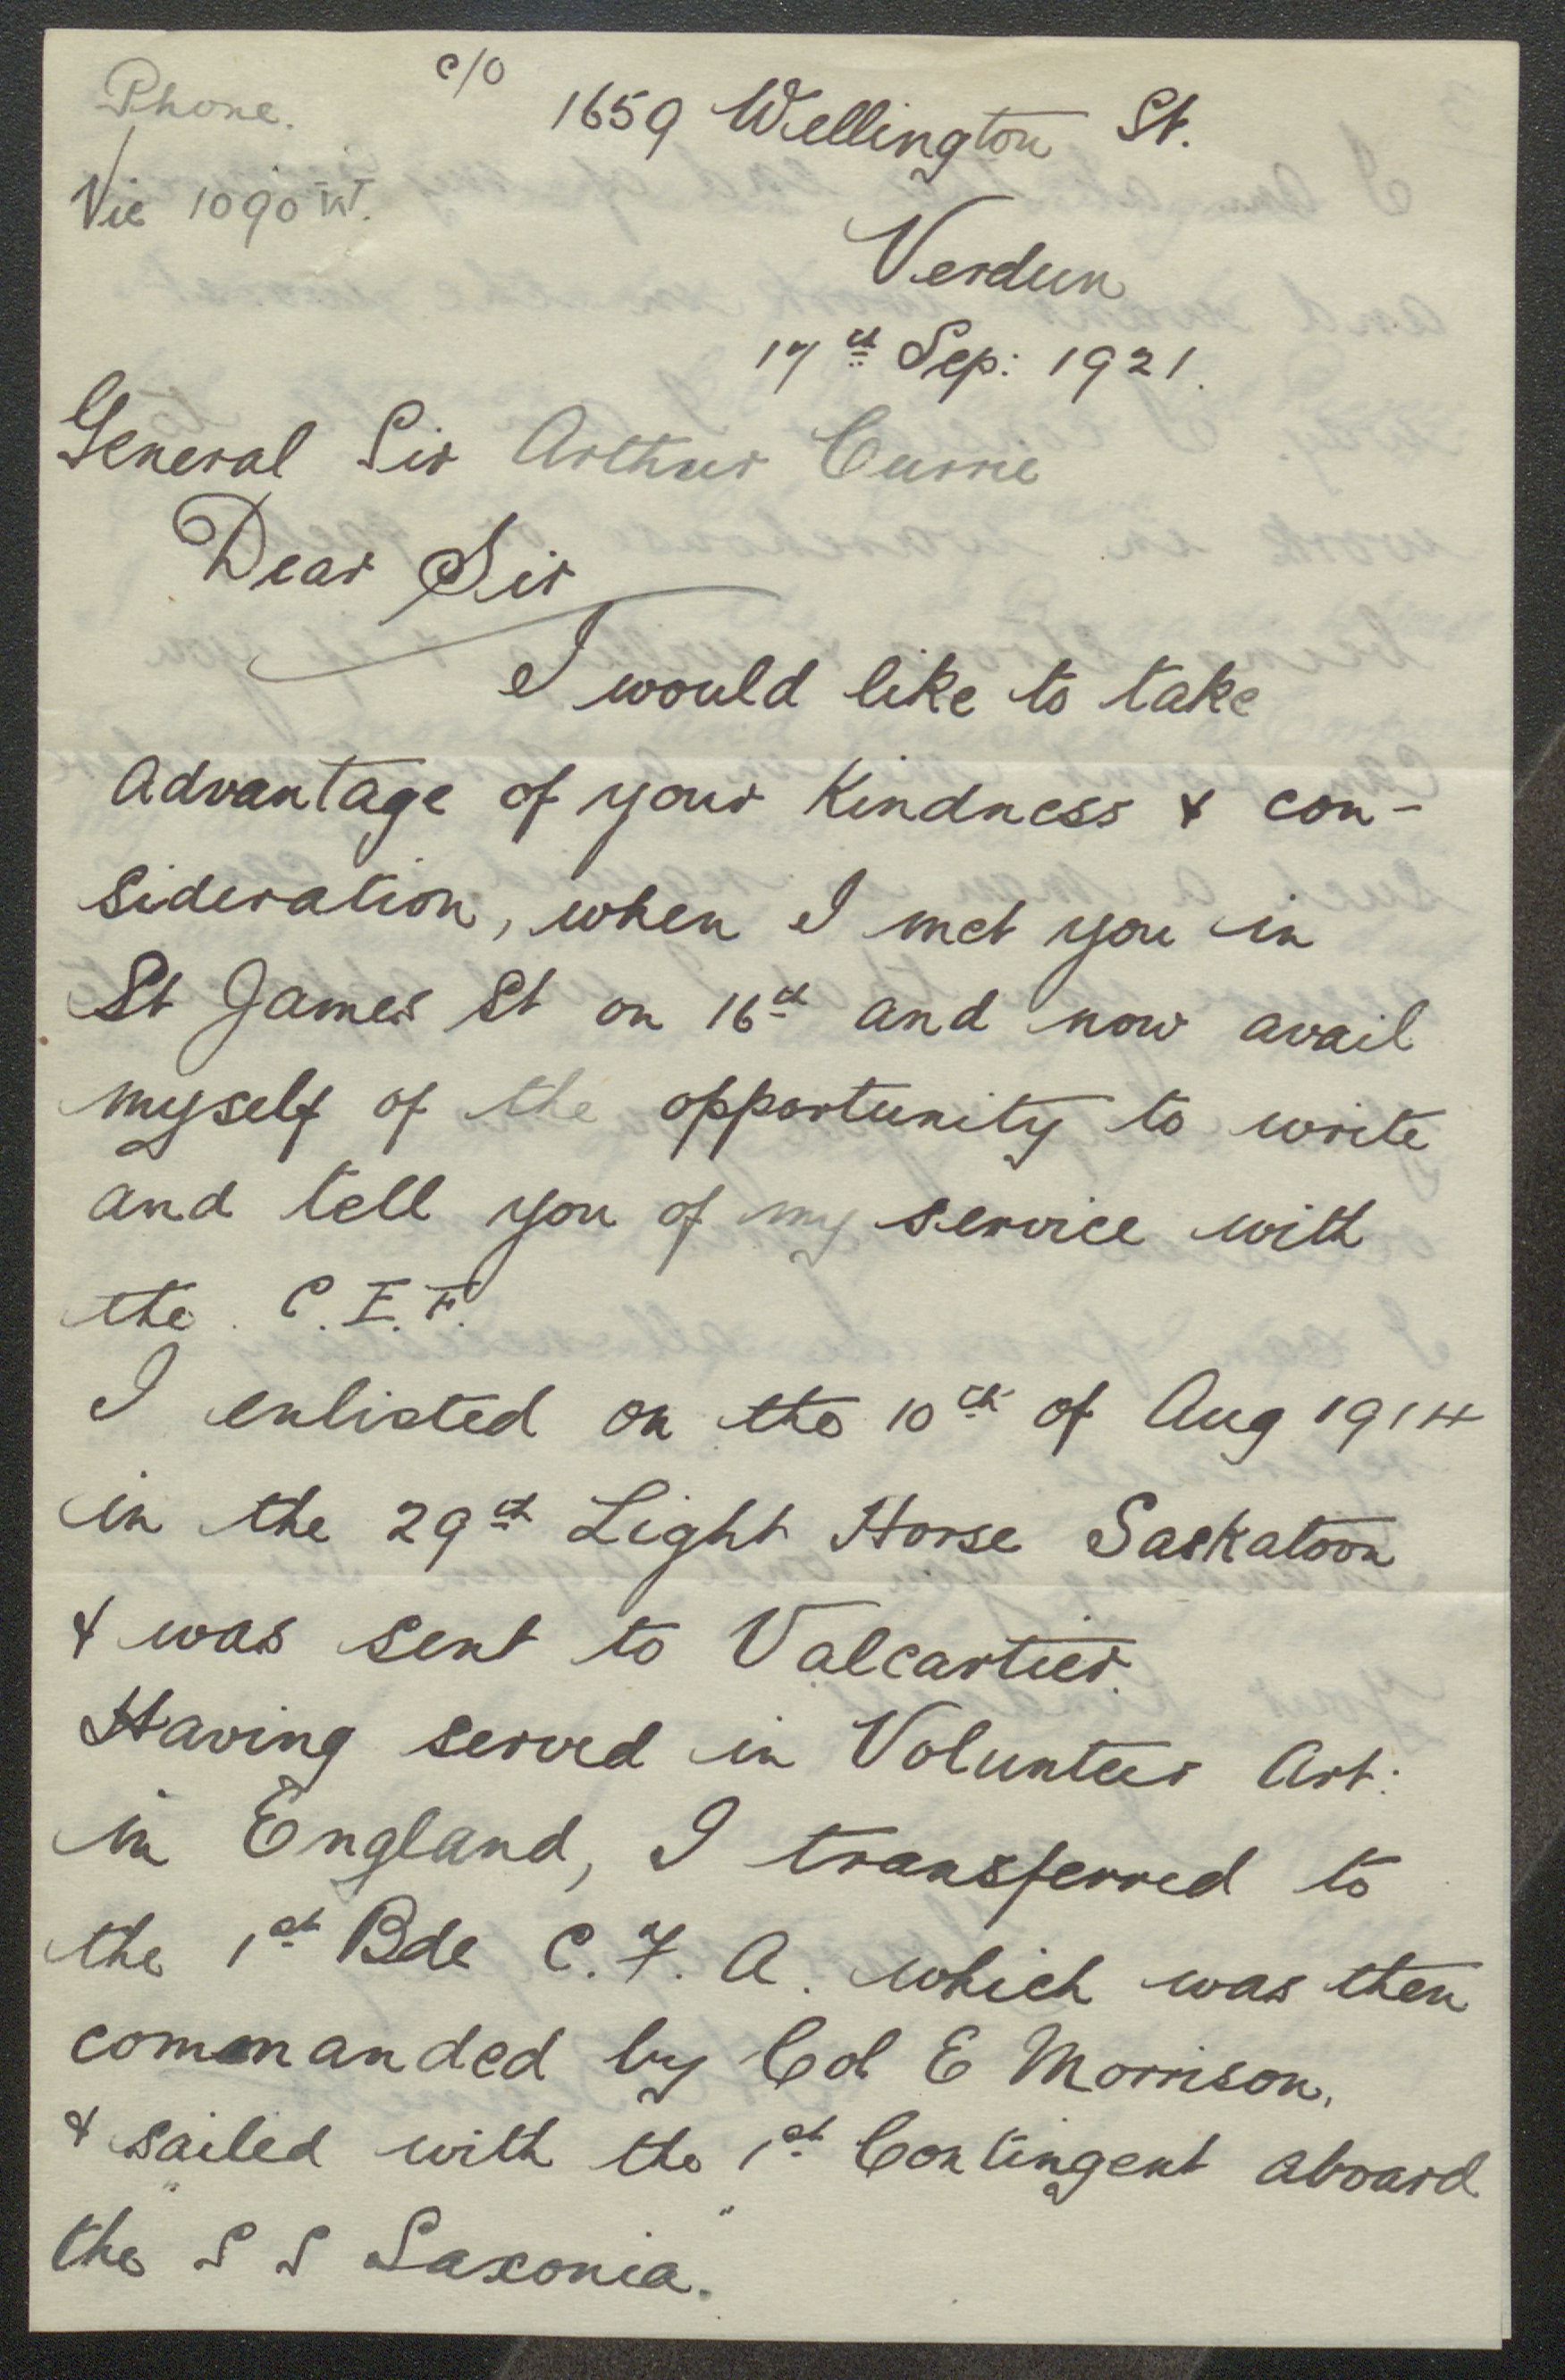 Phone.
Vic 1090 W.
c/o
1659 Wellington St.
Verdun
17th Sep: 1921.
General Sir Arthur Currie
Dear Sir
I would like to take
advantage of your kindness & con-
sideration, when I met you in
St James St on 16th and now avail
myself of the opportunity to write
and tell you of my service with
the C.E.F.
I enlisted on the 10th of Aug 1914
in the 29th Light Horse Saskatoon
& was sent to Valcartier.
Having served in Volunteer Art:
in England, I transferred to
the 1st Bde C.F.A. which was then
commanded by Col E Morrison,
& sailed with the 1st Contingent aboard
the "S S Saxonia."